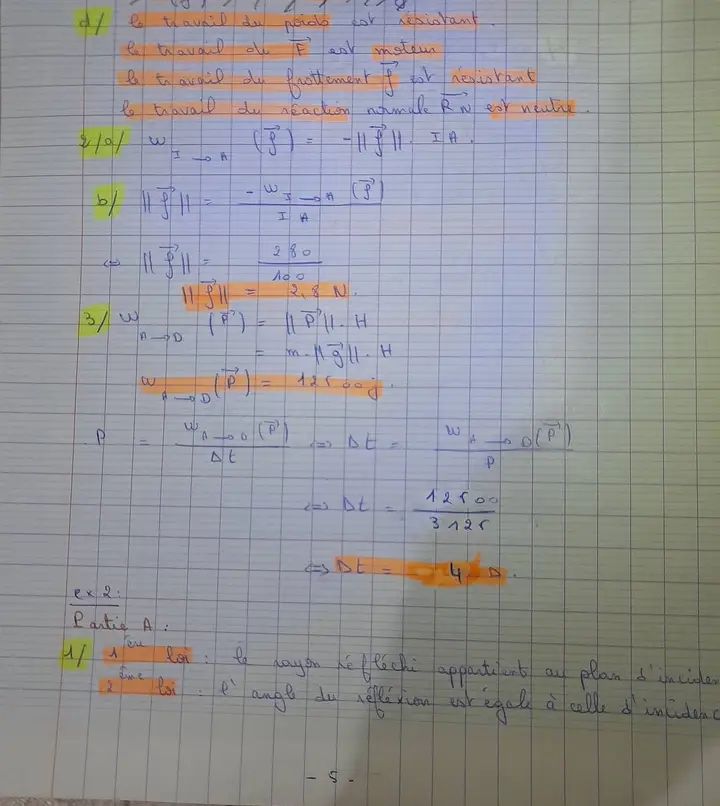 d/ le travail du poids est résistant.
le travail du F→ est moteur
le travail du frottement f→ est résistant
le travail du réaction normale R→N est neutre.
2/a/ W I→A (f→) = -||f→||. IA.
b/ ||f→|| = -W I→A (f→) / IA
⇔ ||f→|| = 280 / 100
||f→|| = 2,8 N.
3/ W A→D (P→) = ||P→||. H
= m.||g→||. H
W A→D (P→) = 12500j.
P = W A→D (P→) / Δt ⇔ Δt = W A→D (P→) / P
⇔ Δt = 12500 / 3125
⇔ Δt = 4 s.
ex 2:
Partie A:
1/ 1ère loi : le rayon réfléchi appartient au plan d'inciden
2ème loi : l'angle du réfléxion est égale à celle d'incidenc
- 5 -